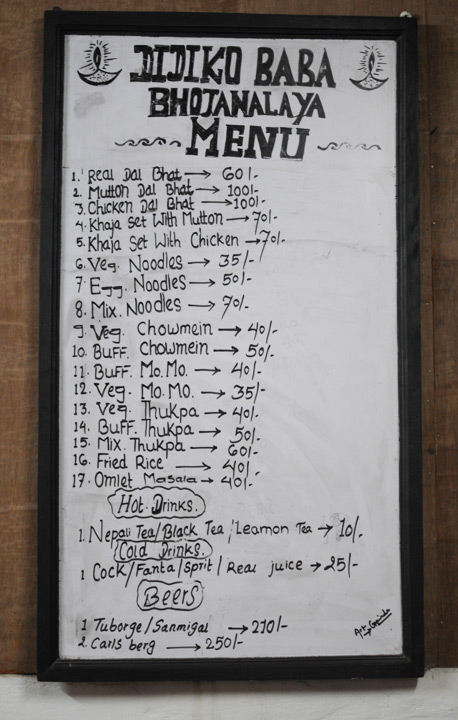 DIDIKO BABA
BHOJANALAYA
MENU
1. Real Dal Bhat → 60/-
2. Mutton Dal Bhat → 100/-
3. Chicken Dal Bhat → 100/-
4. Khaja Set With Mutton → 70/-
5. Khaja Set With Chicken → 70/-
6. Veg. Noodles → 35/-
7. Egg. Noodles → 50/-
8. Mix. Noodles → 70/-
9. Veg. Chowmein → 40/-
10. Buff. Chowmein → 50/-
11. Buff. Mo.Mo. → 40/-
12. Veg. Mo.Mo. → 35/-
13. Veg. Thukpa → 40/-
14. Buff. Thukpa → 50/-
15. Mix. Thukpa → 60/-
16. Fried Rice → 40/-
17. Omlet Masala → 40/-
Hot Drinks.
1. Nepali Tea/Black Tea/Leamon Tea → 10/-
Cold Drinks.
1 Cock/Fanta/Sprit/Real juice → 25/-
Beers
1 Tuborge/Sanmigal → 210/-
2. Carls berg → 250/-